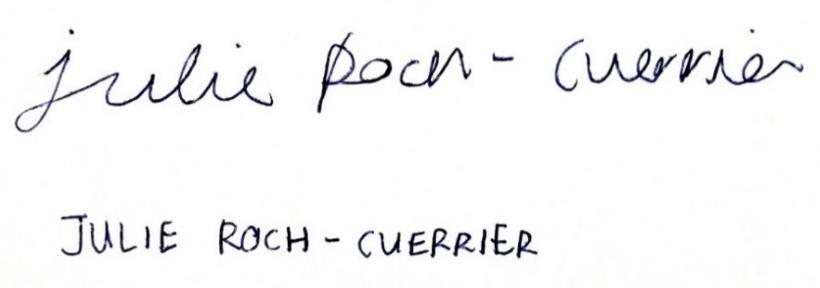 Julie Roch - Cuerrier
JULIE ROCH - CUERRIER